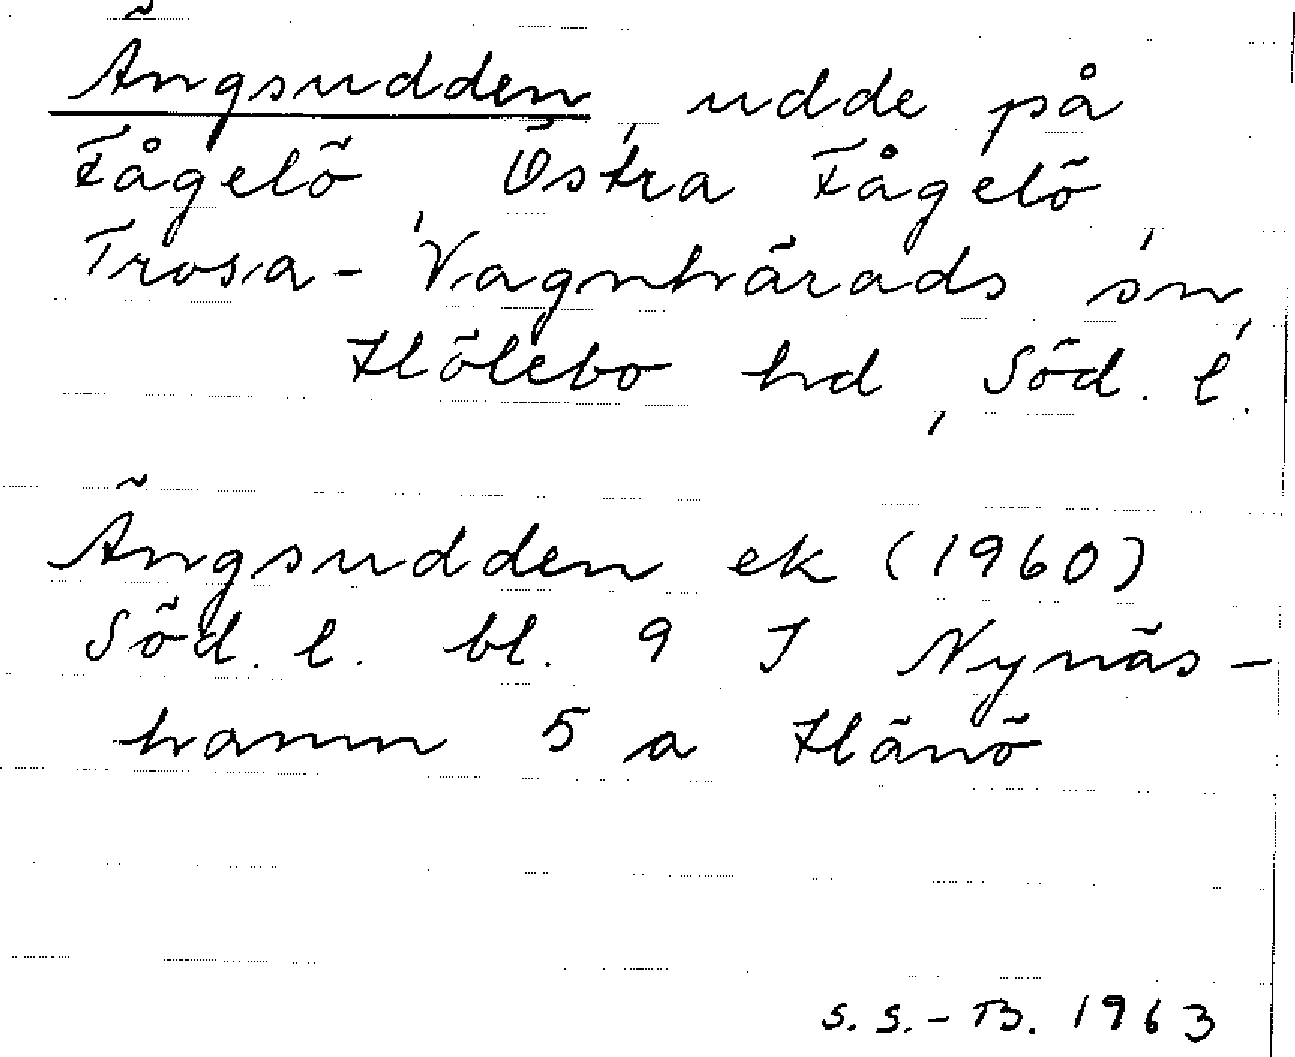 Ängsudden, udde på
Fågelö, Östra Fågelö,
Trosa-Vagnhärads sn,
Hölebo hd, Söd. l.
Ängsudden ek (1960)
Söd. l. bl. 9 I Nynäs-
hamn 5 a Hånö
S. S.-B. 1963